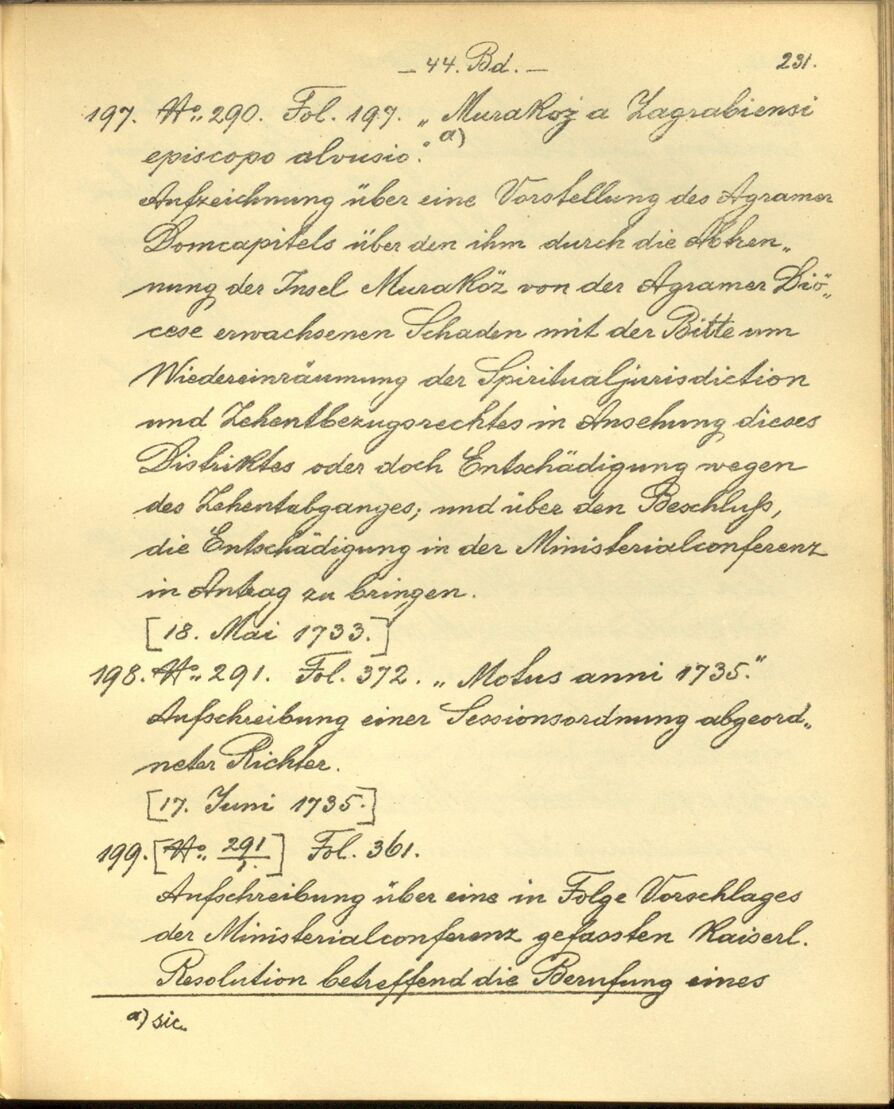 – 44. Bd. – 231.
197. No. 290. Fol. 197. „Muraköz a Zagrabiensi
episcopo alvusio."a)
Aufzeichnung über eine Vorstellung des Agramer
Domcapitels über den ihm durch die Abtren„
nung der Insel Muraköz von der Agramer Diö„
cese erwachsenen Schaden mit der Bitte um
Wiedereinräumung der Spiritualjurisdiction
und Zehentbezugsrechtes in Ansehung dieses
Distriktes oder doch Entschädigung wegen
des Zehentabganges; und über den Beschluß,
die Entschädigung in der Ministerialconferenz
in Antrag zu bringen.
[18. Mai 1733.]
198. No. 291. Fol. 372. „Motus anni 1735."
Aufschreibung einer Sessionsordnung abgeord„
neter Richter.
[17. Juni 1735.]
199. [No. 291/1.] Fol. 361.
Aufschreibung über eine in Folge Vorschlages
der Ministerialconferenz gefassten Kaiserl.
Resolution betreffend die Berufung eines
a) sic.